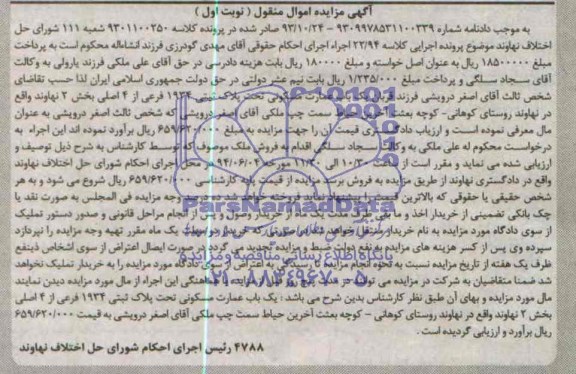 آگهی مزایده اموال منقول ( نوبت اول )
به موجب دادنامه شماره ۹۳۰۹۹۷۸۵۳۱۱۰۰۳۳۹ - ۹۳/۱۰/۲۴ صادر شده در پرونده کلاسه ۹۳۰۱۱۰۰۲۵۰ شعبه ۱۱۱ شورای حل
اختلاف نهاوند موضوع پرونده اجرایی کلاسه ۲۲/۹۴ اجراء اجرای احکام حقوقی آقای مهدی گودرزی فرزند انشاءاله محکوم است به پرداخت
مبلغ ۱۸۵۰۰۰۰۰ ریال به عنوان اصل خواسته و مبلغ ۱۸۰۰۰۰ ریال بابت هزینه دادرسی در حق آقای علی ملکی فرزند یارولی به وکالت
آقای سجاد سلگی و پرداخت مبلغ ۱/۲۳۵/۰۰۰ ریال بابت نیم عشر دولتی در حق دولت جمهوری اسلامی ایران لذا حسب تقاضای
شخص ثالث آقای اصغر درویشی فرزند عمارت مسکونی تحت پلاک ثبتی ۱۹۳۴ فرعی از ۴ اصلی بخش ۲ نهاوند واقع
در نهاوند روستای کوهانی- کوچه بعثت سمت چپ ملکی آقای اصغر درویشی که شخص ثالث اصغر درویشی به عنوان
مال معرفی نموده است و ارزیاب دادگستری قیمت آن را جهت مزایده به مبلغ ۶۵۹/۶۲۰/۰۰۰ ریال برآورد نموده اند این اجراء به
درخواست محکوم له علی ملکی به وکالت سجاد سلگی اقدام به فروش ملک موصوف که توسط کارشناس به شرح ذیل توصیف و
ارزیابی شده می نماید و مقرر است از ساعت ۱۰/۳۰ الی ۱۱/۳۰ مورخه ۹۴/۰۶/۰۴ در محل اجرای احکام شورای حل اختلاف نهاوند
واقع در دادگستری نهاوند از طریق مزایده به فروش برسد مزایده از قیمت پایه کارشناسی ۶۵۹/۶۲۰/۰۰۰ ریال شروع می شود و به هر
شخص حقیقی یا حقوقی که بالاترین قیمت را پیشنهاد نماید فروخته خواهد شد ده درصد وجه مزایده فی المجلس به صورت نقد یا
چک بانکی تضمینی از خریدار اخذ و ما بقی یک ماه از خریدار وصول و پس از انجام مراحل قانونی و صدور دستور تملیک
از سوی دادگاه مورد مزایده به نام خریدار منتقل خواهد شد در صورتی که خریدار در مهلت یک ماه مقرر بقیه وجه مزایده را نپردازد
سپرده وی پس از کسر هزینه های مزایده به نفع دولت ضبط و مزایده تجدید می گردد در صورت ایصال اعتراض از سوی اشخاص ذینفع
ظرف یک هفته از تاریخ مزایده نسبت به نحوه انجام مزایده تا رسیدگی به اعتراض از سوی دادگاه مورد مزایده را به خریدار تملیک نخواهد
شد ضمنا متقاضیان به شرکت در مزایده می توانند در مدت پنج روز قبل از مزایده با هماهنگی این اجراء از مال مورد مزایده دیدن نمایند
مال مورد مزایده و بهای آن طبق نظر کارشناس بدین شرح می باشد : یک باب عمارت مسکونی تحت پلاک ثبتی ۱۹۳۴ فرعی از ۴ اصلی
بخش ۲ نهاوند واقع در نهاوند روستای کوهانی - کوچه بعثت آخرین حیاط سمت چپ ملکی آقای اصغر درویشی به قیمت ۶۵۹/۶۲۰/۰۰۰
ریال برآورد و ارزیابی گردیده است .
۴۷۸۸ رئیس اجرای احکام شورای حل اختلاف نهاوند
ParsNamadData
پایگاه اطلاع رسانی مناقصه و مزایده
۰۲۱-۸۸۳۴۹۶۷۰-۵